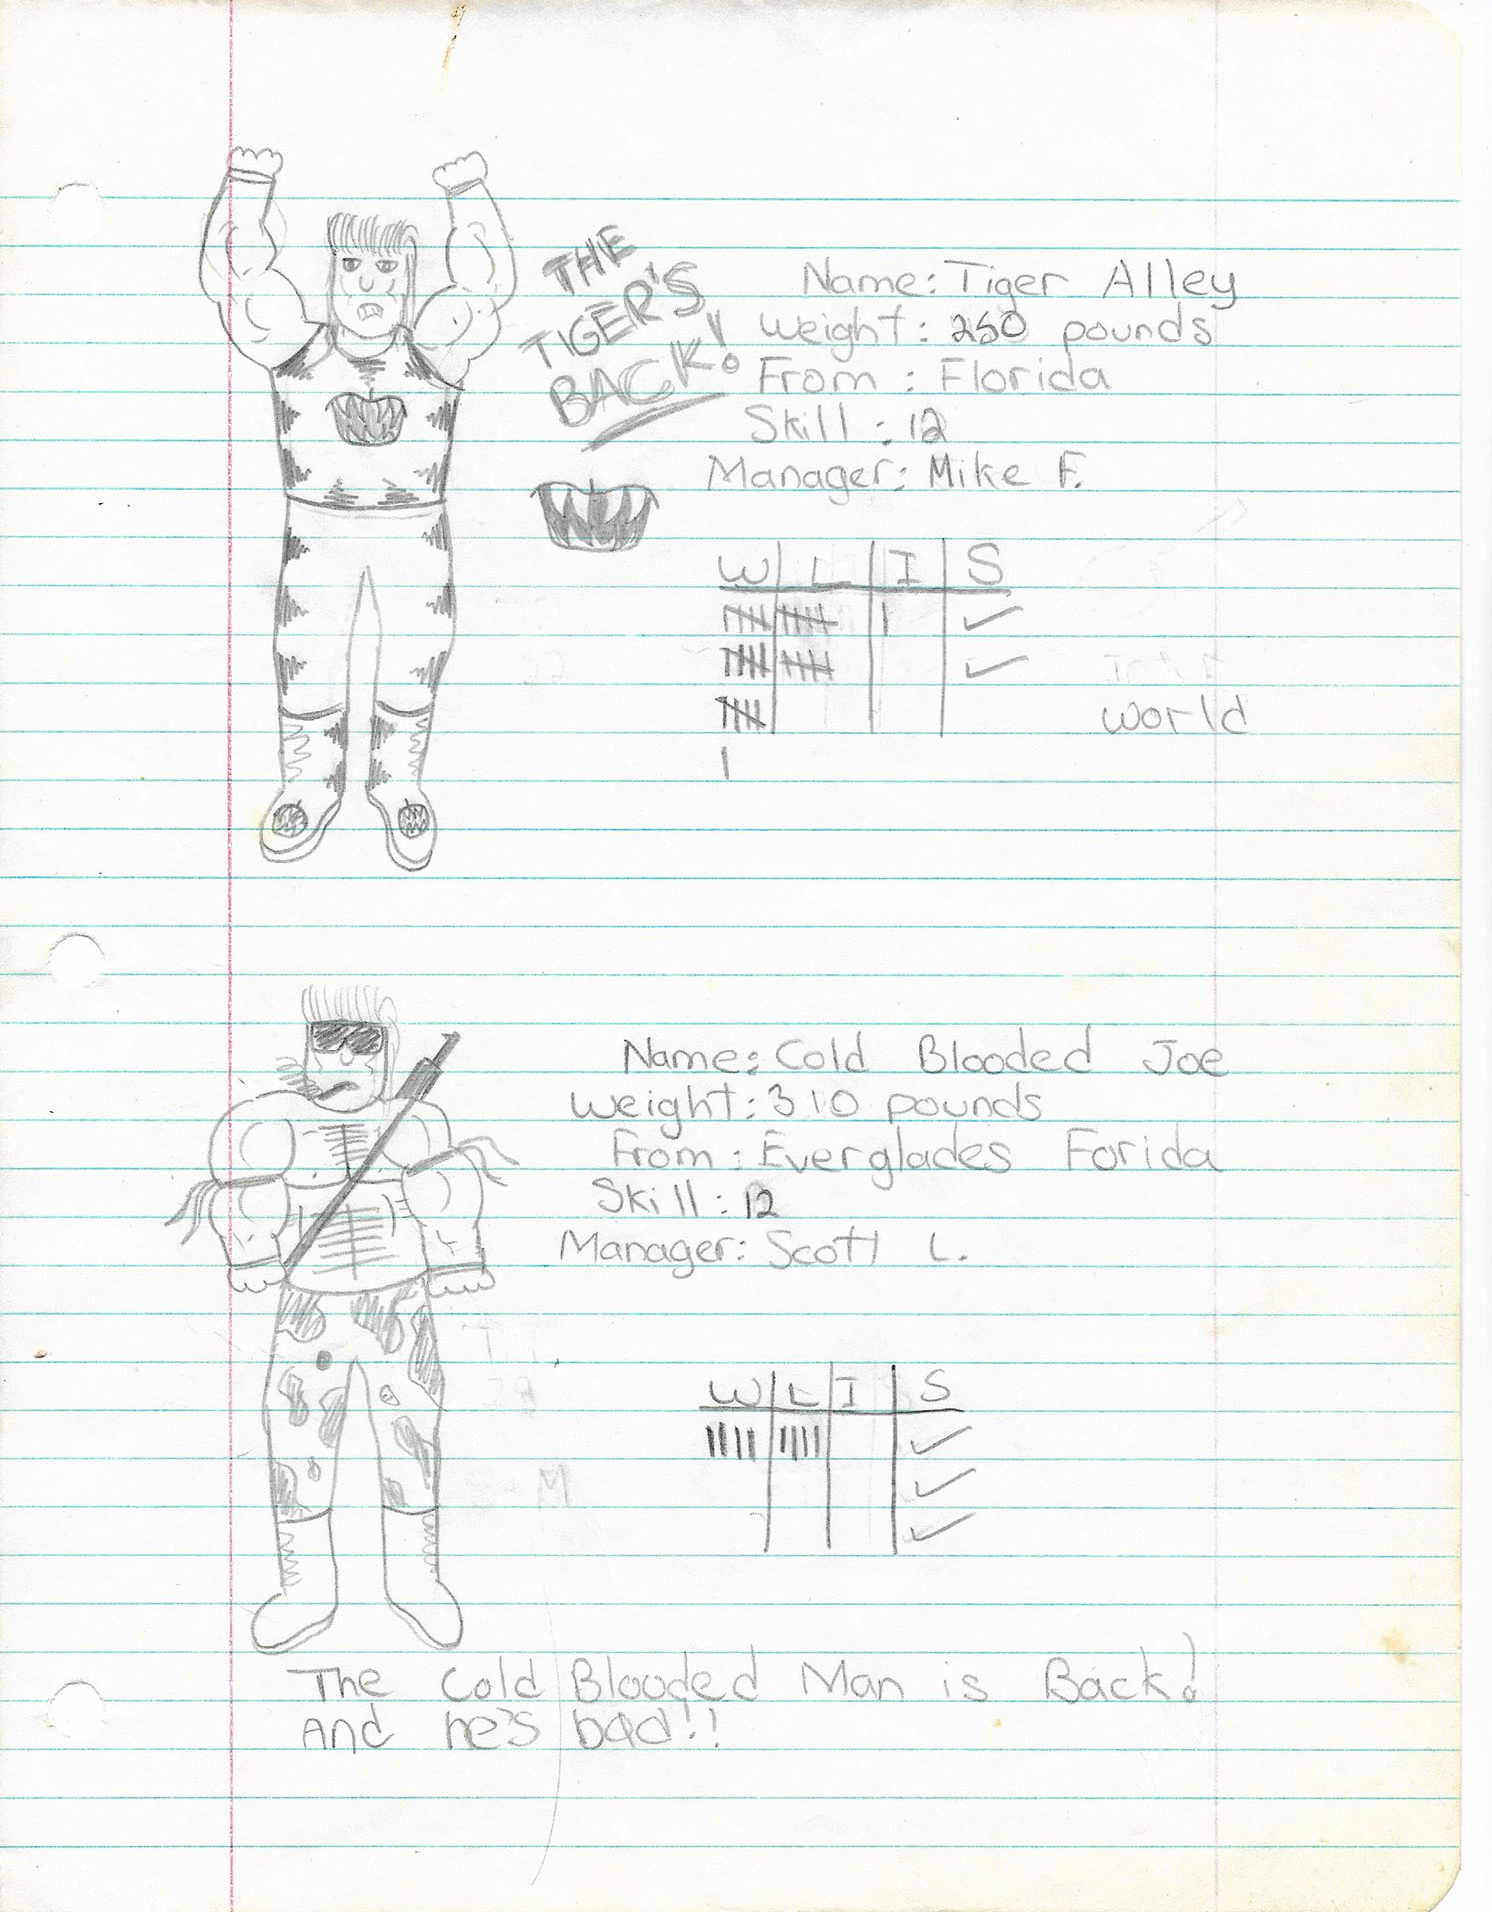 THE
TIGER'S
BACK!
Name: Tiger Alley
Weight: 250 pounds
From: Florida
Skill: 12
Manager: Mike F.
W L I S
World
Name: Cold Blooded Joe
Weight: 310 pounds
From: Everglades Forida
Skill: 12
Manager: Scott L.
W L I S
The Cold Blooded Man is Back!
And he's bad!!